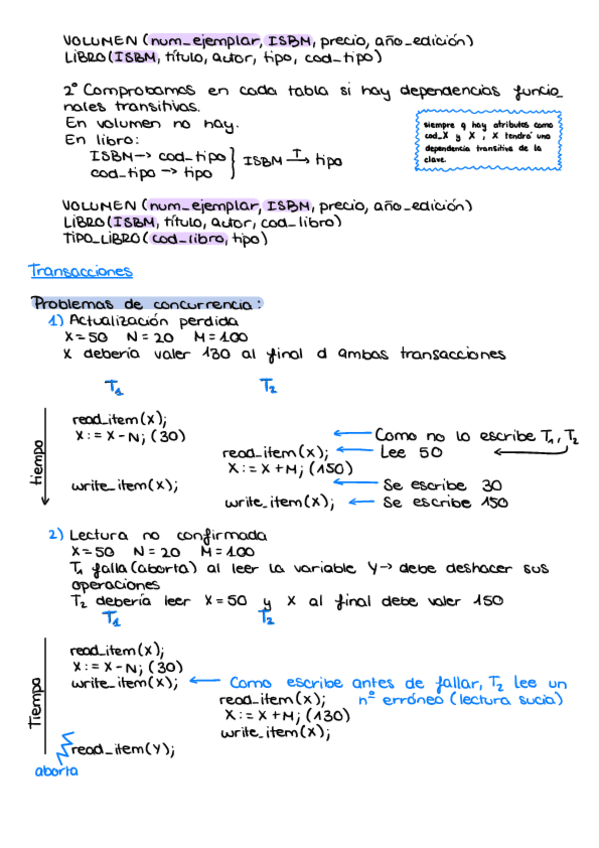 VOLUMEN (num_ejemplar, ISBM, precio, año_edición)
LIBRO (ISBM, título, autor, tipo, cod_tipo)
2º Comprobamos en cada tabla si hay dependencias funcio_
nales transitivas.
En volumen no hay.
En libro:
ISBM → cod_tipo
cod_tipo → tipo
} ISBM T→ tipo
siempre q hay atributos como
cod_X y X, X tendrá una
dependencia transitiva de la
clave.
VOLUMEN (num_ejemplar, ISBM, precio, año_edición)
LIBRO (ISBM, título, autor, cod_libro)
TIPO_LIBRO (cod_libro, tipo)
Transacciones
Problemas de concurrencia:
1) Actualización perdida
X=50 N=20 M=100
X debería valer 130 al final d ambas transacciones
T1 T2
tiempo
read_item(X);
X:= X-N; (30) ← Como no lo escribe T1, T2
read_item(X); ← Lee 50
X:= X+M; (150)
write_item(X); ← Se escribe 30
write_item(X); ← Se escribe 150
2) Lectura no confirmada
X=50 N=20 M=100
T1 falla (aborta) al leer la variable Y → debe deshacer sus
operaciones
T2 debería leer X=50 y X al final debe valer 150
T1 T2
Tiempo
read_item(X);
X:= X-N; (30)
write_item(X); ← Como escribe antes de fallar, T2 lee un
read_item(X); nº erróneo (lectura sucia)
X:= X+M; (130)
write_item(X);
read_item(Y);
aborta